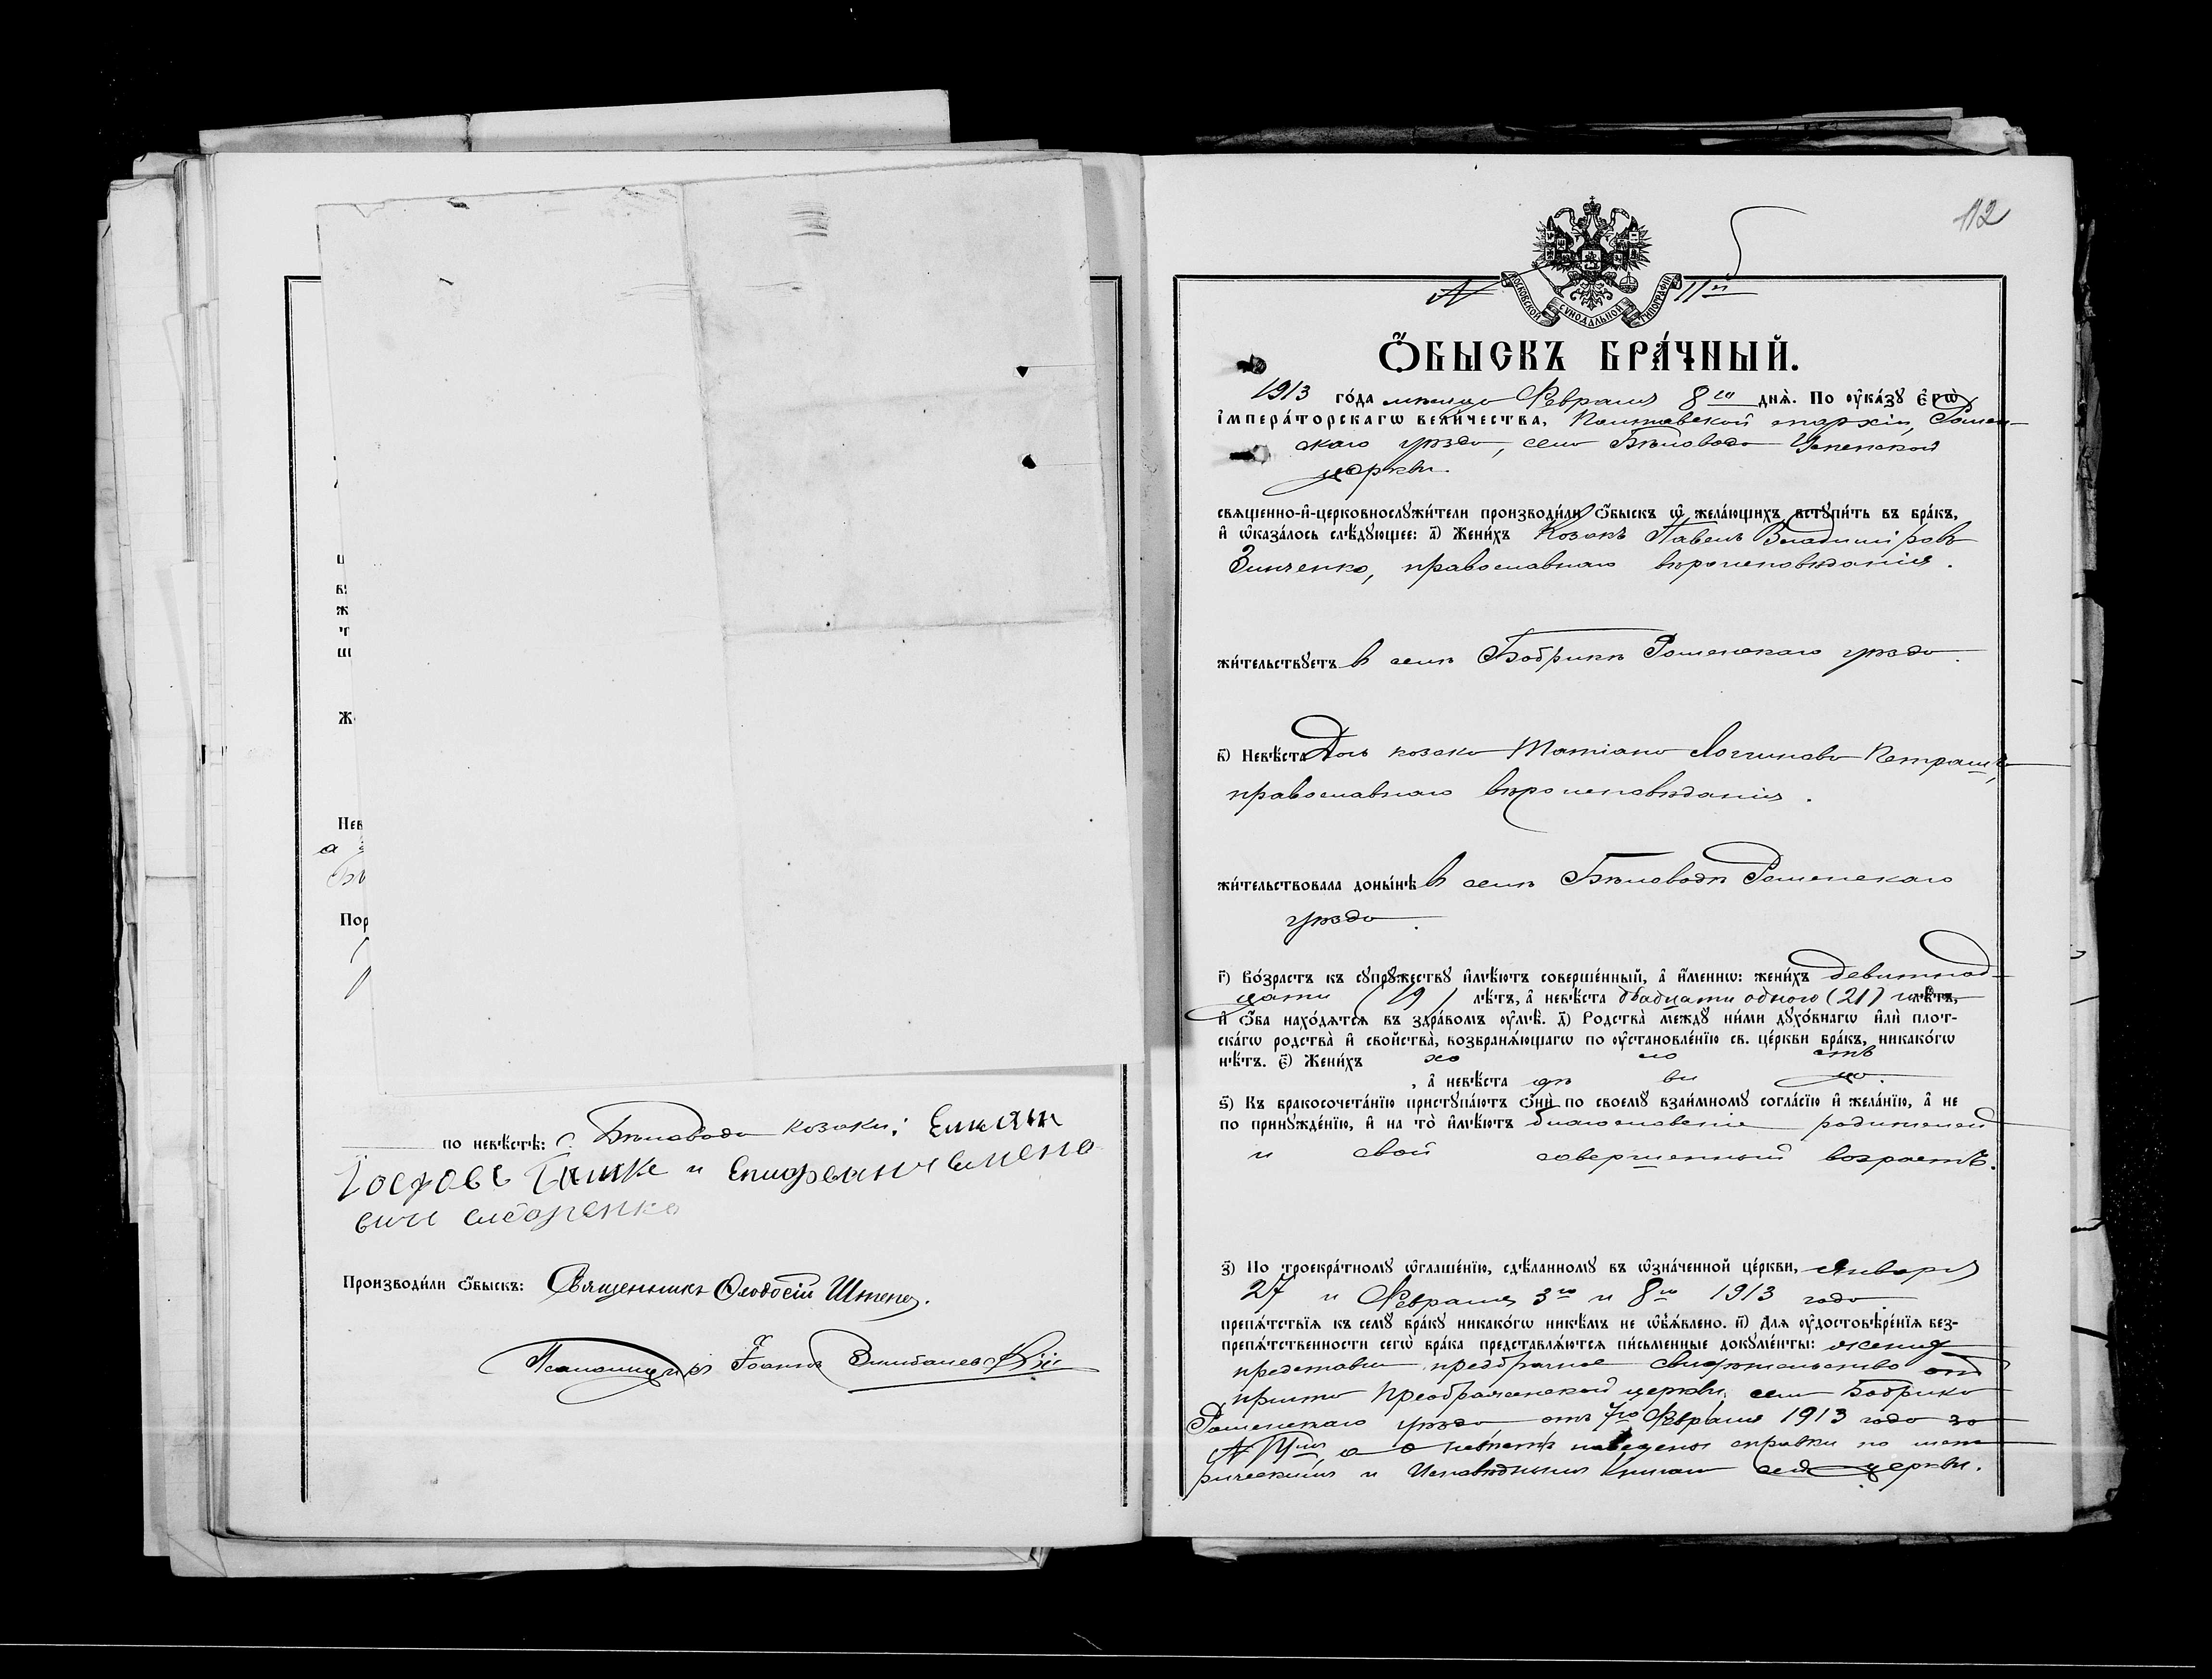 по невѣ́стѣ: с. Бѣловода козаки:
и
Производи́ли ѻ҆́быскъ: Священникъ Ѳеодосій
Псаломщикъ Іоаннъ
112
№ 11й
МОСКОВСКОЙ СѴНОДАЛЬНОЙ ТИПОГРАФІИ
Ѻ҆́БЫСКЪ БРА́ЧНЫЙ.
1913 го́да мѣсяца Февраля 8го днѧ̀. По ᲂу҆ка́зꙋ є҆гѡ̀
і҆мпера́торскагѡ вели́чества, Полтавской епархіи, Ромен-
скаго уѣзда, села Бѣловода Успенской
церкви
свѧще́нно-и҆-церковнослꙋжи́тели производи́ли ѻ҆́быскъ ѡ҆ жела́ющихъ вст
ꙋпи́ть въ бра́къ,
и҆ ѡ҆каза́лось слѣ́дꙋющее: а҃) Жени́хъ Козакъ Павелъ Владиміровъ
Зинченко, православнаго вѣроисповѣданія.
жи́тельствꙋетъ в селѣ Бобрикѣ Роменскаго уѣзда.
в҃) Невѣ́ста Дочь козака Татіана Логгинова Петраш
православнаго вѣроисповѣданія.
жи́тельствовала доны́нѣ в селѣ Бѣловодѣ Роменскаго
уѣзда.
г҃) Во́зрастъ къ сꙋпрꙋ́жествꙋ и҆мѣ́ютъ соверше́нный, а҆ и҆́меннѡ: жени́хъ девятнад-
цати (19) лѣ́тъ, а҆ невѣ́ста двадцати одного (21) лѣ́тъ,
и҆ ѻ҆́ба нахо́дѧтсѧ въ здра́вомъ ᲂу҆мѣ̀. д҃) Родства̀ междꙋ̀ ни́ми дꙋхо́внагѡ и҆лѝ плот-
ска́гѡ родства̀ и҆ свойства̀, возбранѧ́ющагѡ по ᲂу҆становле́нїю св. це́ркви бра́къ, никако́гѡ
нѣ́тъ. є҃) Жени́хъ хо ло стъ
, а҆ невѣ́ста дѣ ви ца.
ѕ҃) Къ бракосочета́нїю пристꙋпа́ютъ ѻ҆нѝ по своемꙋ̀ взаи́мномꙋ согла́сїю и҆ жела́нїю, а҆ не
по принꙋжде́нїю, и҆ на то̀ и҆мѣ́ютъ благословеніе родителей
и свой совершенный возрастъ.
з҃) По троекра́тномꙋ ѡ҆глаше́нїю, сдѣ́ланномꙋ въ ѡ҆зна́ченной це́ркви, Января
27 и Февраля 3го и 8го 1913 года
препѧ́тствїѧ къ семꙋ̀ бра́кꙋ никако́гѡ никѣ́мъ не ѡ҆б̾ѧ́влено. и҃) Длѧ ᲂу҆достовѣре́нїѧ без-
препѧ́тственности сегѡ̀ бра́ка представлѧ́ютсѧ пи́сьменные докꙋме́нты: жених
представил предбрачное свидѣтельство от
причта Преображенской церкви, села Бобрика
Роменскаго уѣзда, отъ 7го Февраля 1913 года за
№ а о невѣстѣ наведены справки по мет
рическимъ и Исповѣднымъ Книгам сей церкви.